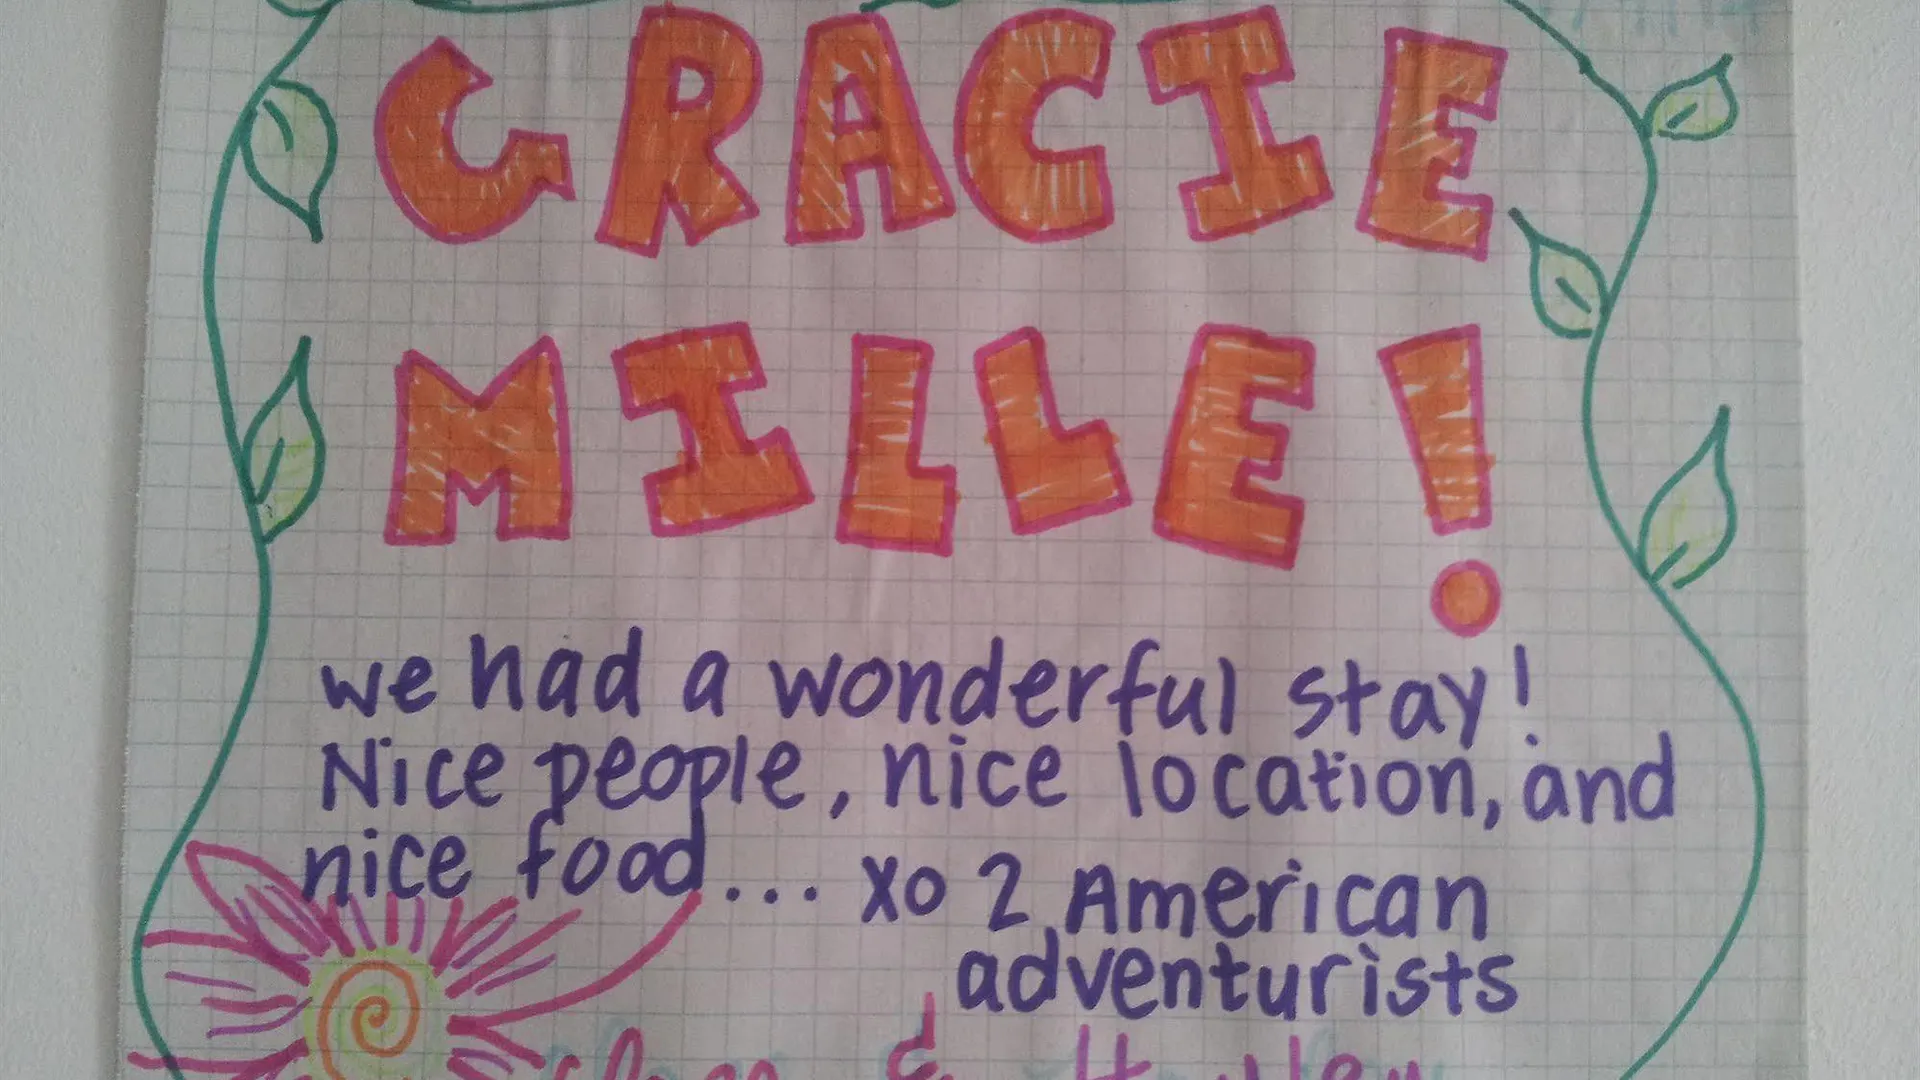 GRACIE
MILLE!
we had a wonderful stay!
Nice people, nice location, and
nice food... xo 2 American
adventurists
&